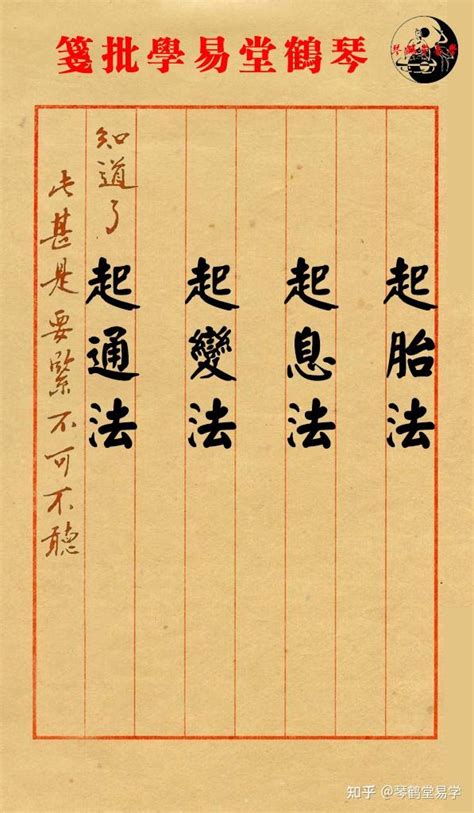 琴鶴堂易學批箋
起胎法
起息法
起變法
知道了
起通法
此甚是要緊不可不聽
知乎 @琴鹤堂易学